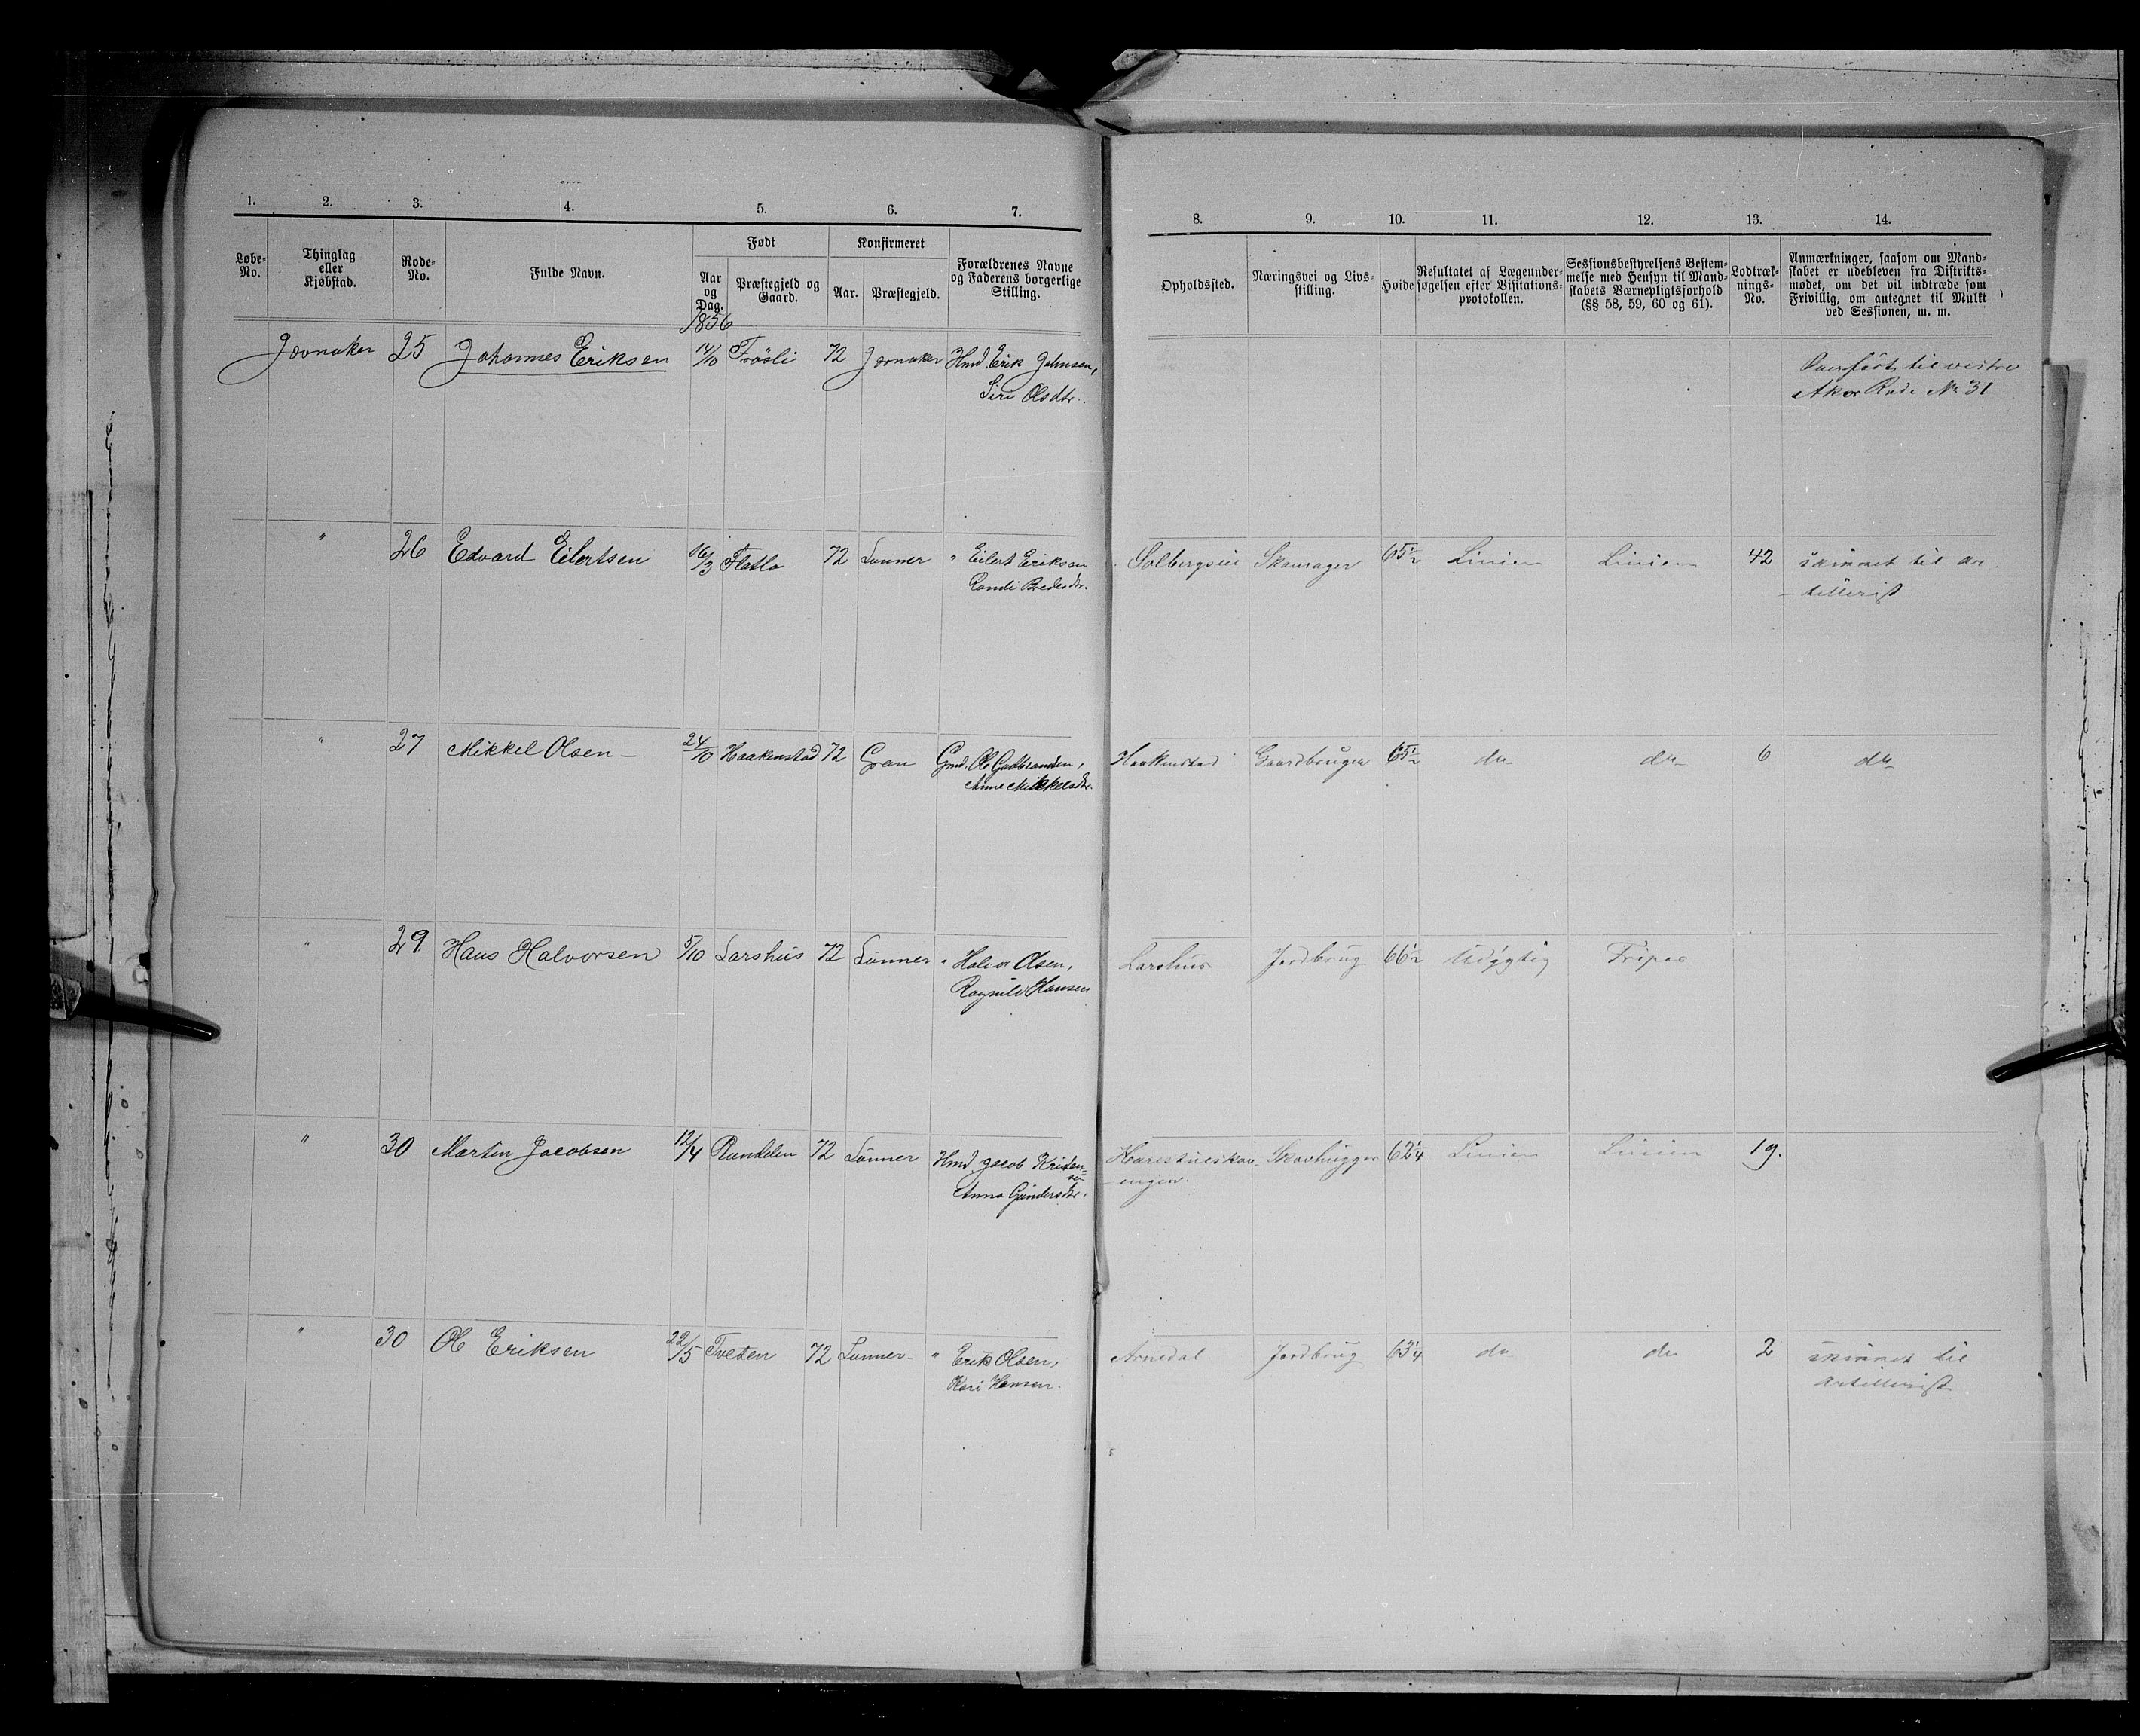 1. 2. 3. 4. 5. 6. 7.
Løbe-No. Thinglag eller Kjøbstad. Rode-No. Fulde Navn. Født Aar og Dag. Præstegjeld og Gaard. Konfirmeret Aar. Præstegjeld. Forældrenes Navne og Faderens borgerlige Stilling.
8. 9. 10. 11. 12. 13. 14.
Opholdssted. Næringsvei og Livs-stilling. Høide Resultatet af Lægeunder-søgelsen efter Visitations-protokollen. Sessionsbestyrelsens Bestem-melse med Hensyn til Mand-skabets Værnepligtsforhold (§§ 58, 59, 60 og 61). Lodtræk-nings-No. Anmærkninger, saasom om Mand-skabet er udebleven fra Distrikts-mødet, om det vil indtræde som Frivillig, om antegnet til Mulkt ved Sessionen, m. m.
1856
Jevnaker 25 Johannes Eriksen 14/10 Frösli 72 Jevnaker Hmd. Erik Johnsen, Overført til vestre
Siri Olsdtr. Aker Rode No 31
" 26 Edvard Eilertsen 16/3 Flatla 72 Lunner " Eilert Eriksen Solbergseie 65½ Linien Linien 42 skinnet til ar-
Randi Bredesdtr. -tillerist
" 27 Mikkel Olsen - 24/10 Haakenstad 72 Gran Gmd. Ole Gudbrandsen, Haakenstad Gaardbruger 65½ do do 6 do
Anne Mikkelsdtr.
" 29 Hans Halvorsen 5/10 Larshus 72 Lunner " Halvor Olsen, Larshus Jordbrug 66½ Udygtig Fripas
Ragnild Hansen
" 30 Martin Jacobsen 12/4 Randelen 72 Lunner Hmd Jacob Kristen= Harestueskov- Skovhugger 62¼ Linien Linien 19.
sen -engen.
Anna Gundersdtr.
" 30 Ole Eriksen 22/5 Tveten 72 Lunner - " Erik Olsen, Arnedal Jordbrug 63¼ do do 2 skinnet til
Kari Hansen. artillerist